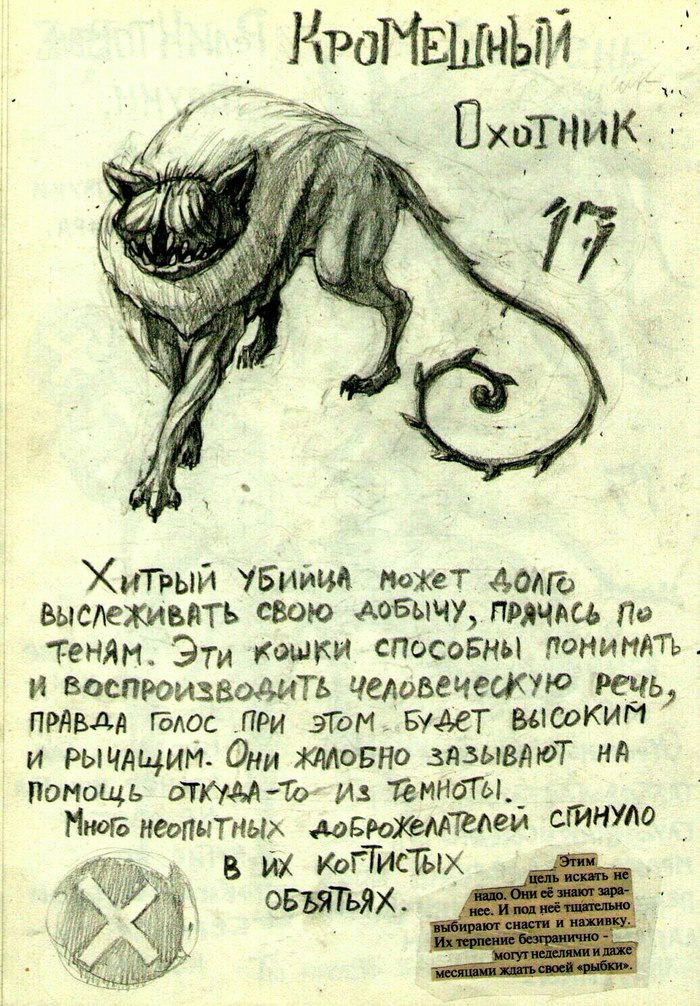 Кромешный
Охотник
17
Хитрый убийца может долго
выслеживать свою добычу, прячась по
теням. Эти кошки способны понимать
и воспроизводить человеческую речь,
правда голос при этом будет высоким
и рычащим. Они жалобно зазывают на
помощь откуда-то из темноты.
Много неопытных доброжелателей сгинуло
в их когтистых
объятьях.
Этим
цель искать не
надо. Они её знают зара-
нее. И под неё тщательно
выбирают снасти и наживку.
Их терпение безгранично -
могут неделями и даже
месяцами ждать своей «рыбки».